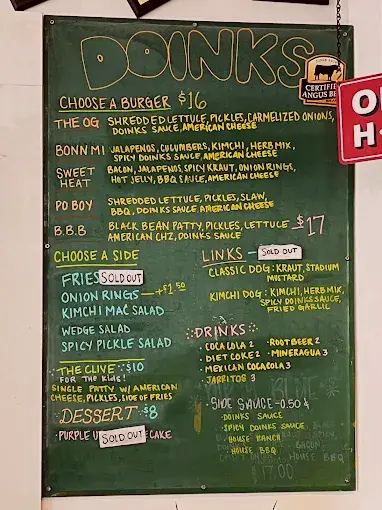 DOINKS
CERTIFIED
ANGUS BEEF
CHOOSE A BURGER $16
THE OG SHREDDED LETTUCE, PICKLES, CARMELIZED ONIONS,
DOINKS SAUCE, AMERICAN CHEESE
BONN MI JALAPENOS, CUCUMBERS, KIMCHI, HERB MIX,
SPICY DOINKS SAUCE, AMERICAN CHEESE
SWEET HEAT BACON, JALAPENOS, SPICY KRAUT, ONION RINGS,
HOT JELLY, BBQ SAUCE, AMERICAN CHEESE
PO BOY SHREDDED LETTUCE, PICKLES, SLAW,
BBQ, DOINKS SAUCE, AMERICAN CHEESE
B.B.B BLACK BEAN PATTY, PICKLES, LETTUCE $17
AMERICAN CHZ, DOINKS SAUCE
CHOOSE A SIDE
FRIES SOLD OUT
ONION RINGS +$1.50
KIMCHI MAC SALAD
WEDGE SALAD
SPICY PICKLE SALAD
THE CLIVE $10
FOR THE KIDS!
SINGLE PATTY W/ AMERICAN
CHEESE, PICKLES, SIDE OF FRIES
DESSERT $8
PURPLE U SOLD OUT CAKE
LINKS - SOLD OUT
CLASSIC DOG: KRAUT, STADIUM
MUSTARD
KIMCHI DOG: KIMCHI, HERB MIX,
SPICY DOINKS SAUCE,
FRIED GARLIC
DRINKS
COCA COLA 2
DIET COKE 2
MEXICAN COCACOLA 3
JARRITOS 3
ROOT BEER 2
MINERAGUA 3
SIDE SAUCE - 0.50¢
DOINKS SAUCE
SPICY DOINKS SAUCE
HOUSE RANCH
HOUSE BBQ
BACON,
HOUSE BBQ
$17.00